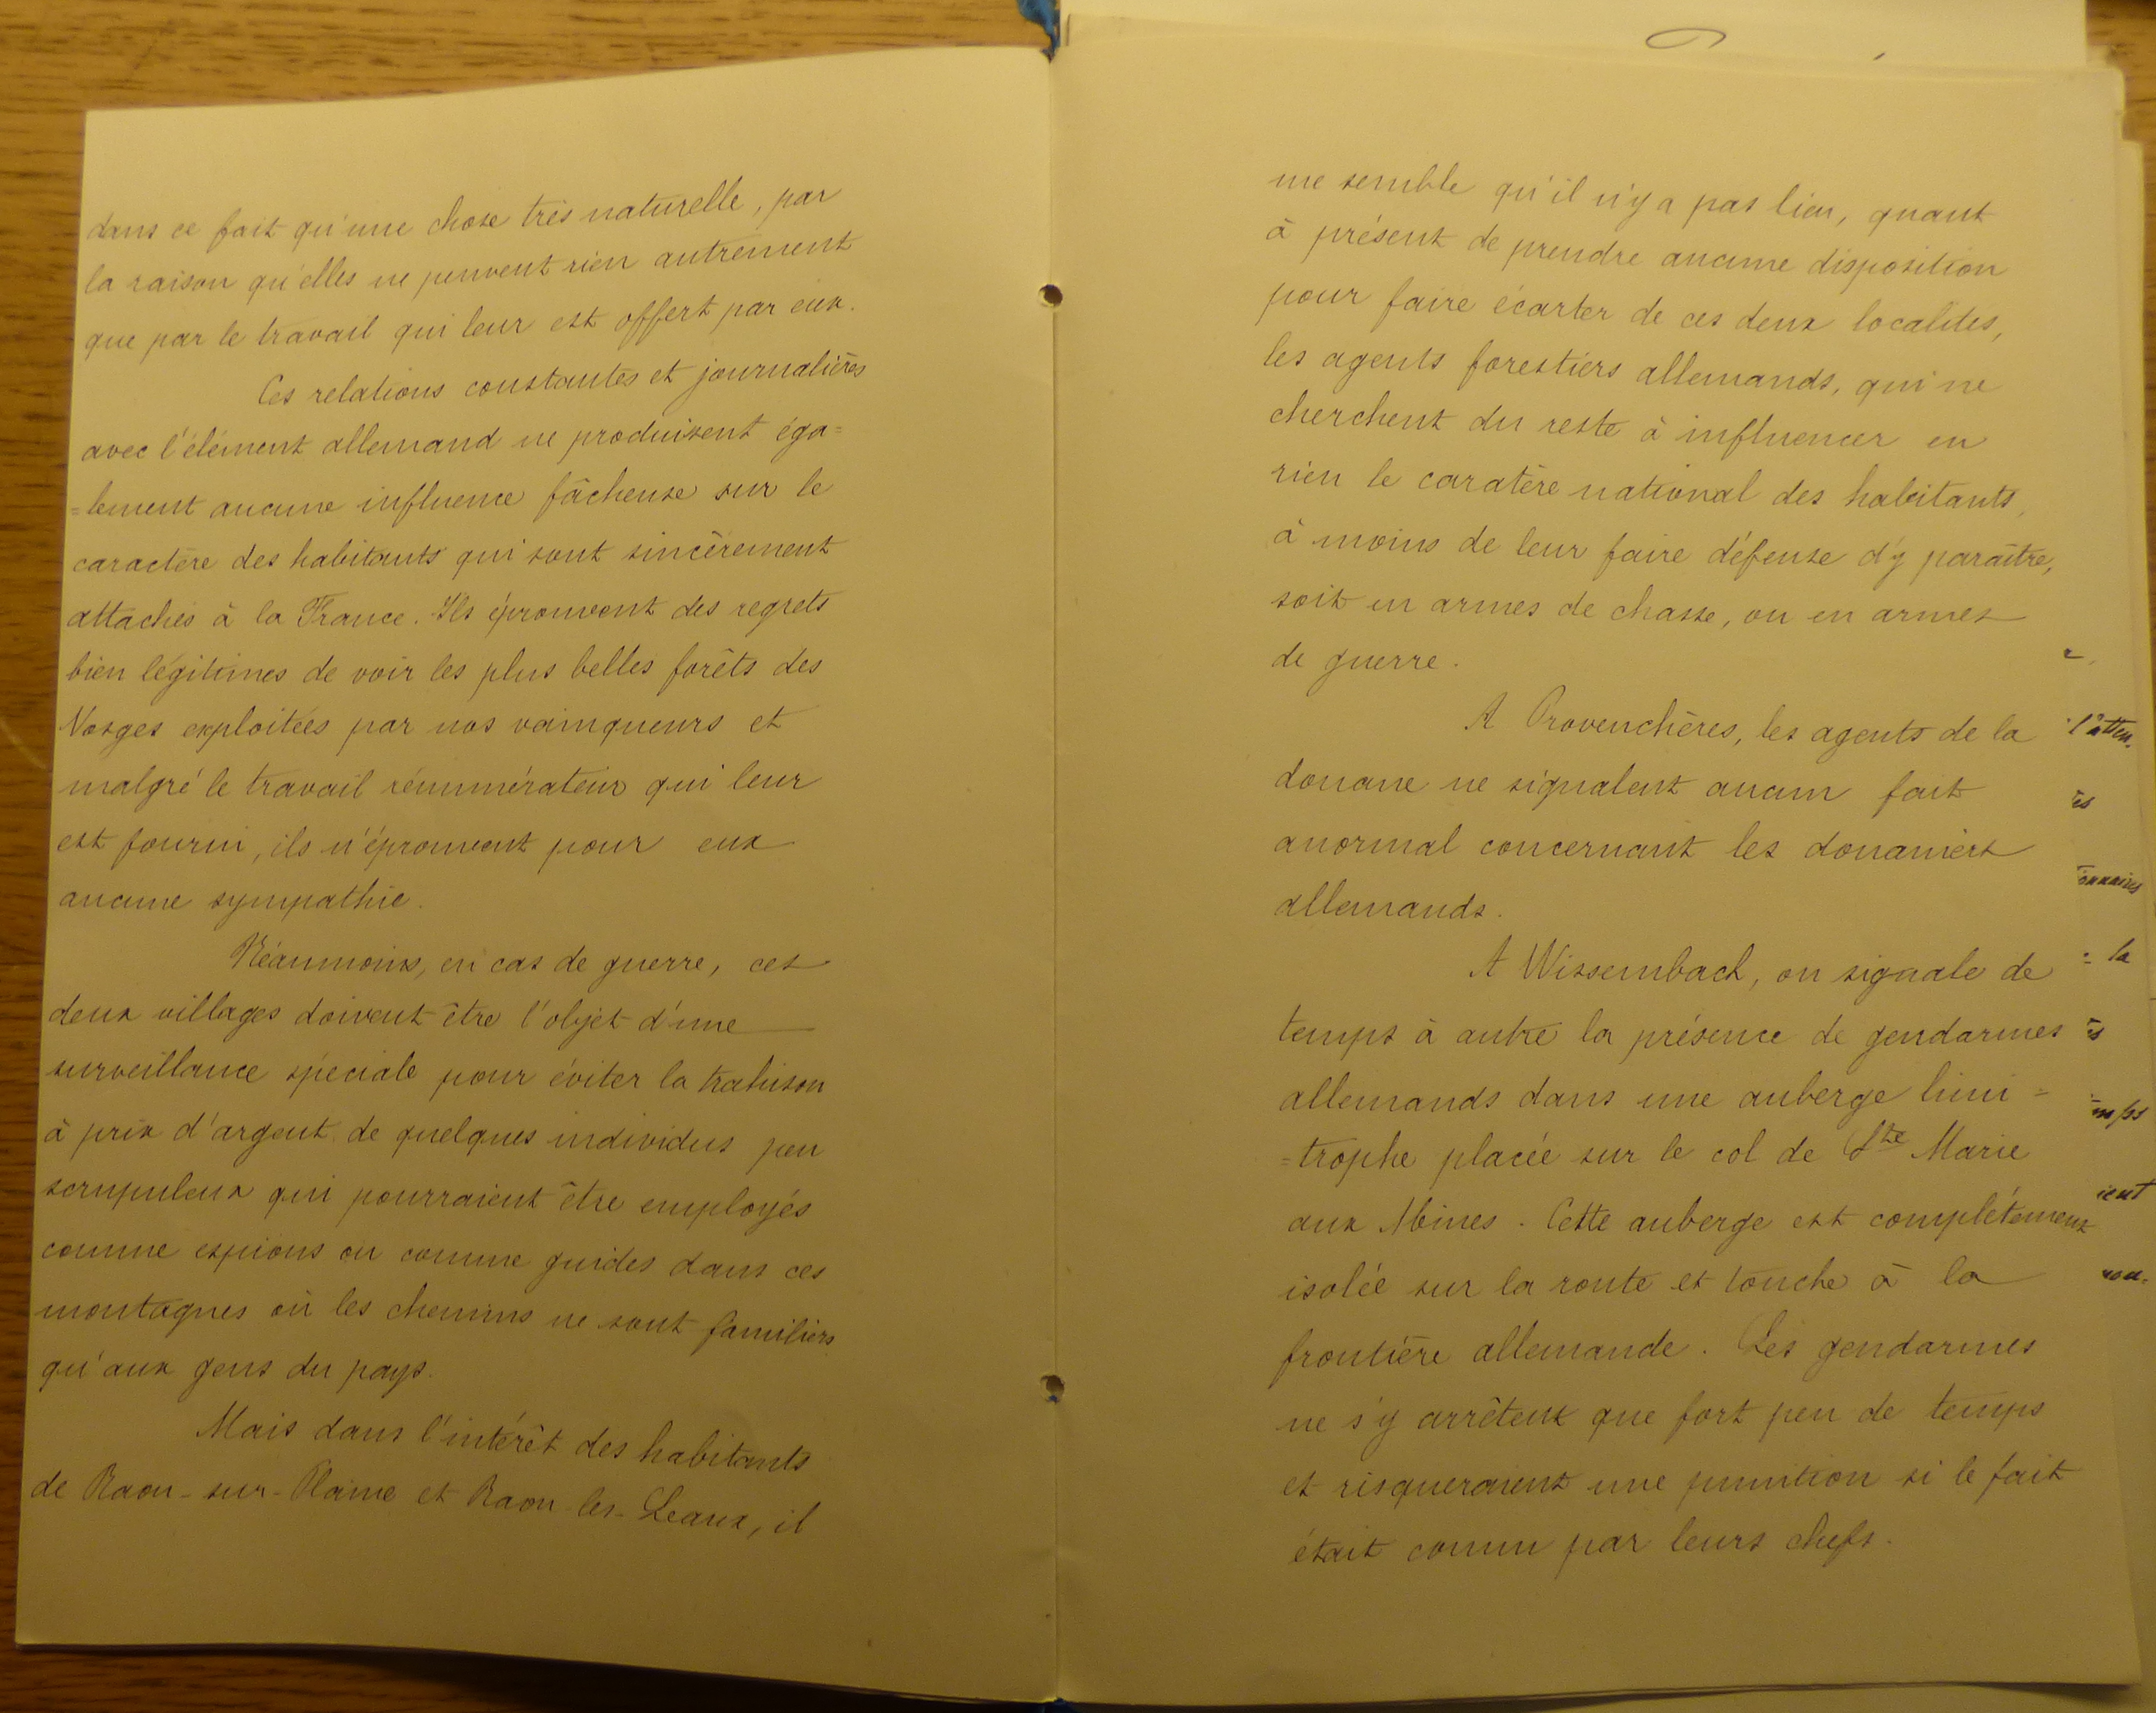 dans ce fait qu'une chose très naturelle, par
la raison qu'elles ne peuvent rien autrement
que par le travail qui leur est offert par eux.
Ces relations constantes et journalières
avec l'élément allemand ne produisent éga=
=lement aucune influence fâcheuse sur le
caractère des habitants qui sont sincèrement
attachés à la France. Ils éprouvent des regrets
bien légitimes de voir les plus belles forêts des
Vosges exploitées par nos vainqueurs et
malgré le travail rémunérateur qui leur
est fourni, ils n'éprouvent pour eux
aucune sympathie.
Néanmoins, en cas de guerre, ces
deux villages doivent être l'objet d'une
surveillance spéciale pour éviter la trahison
à prix d'argent de quelques individus peu
scrupuleux qui pourraient être employés
comme espions ou comme guides dans ces
montagnes où les chemins ne sont familiers
qu'aux gens du pays.
Mais dans l'intérêt des habitants
de Raon-sur-Plaine et Raon-les-Leaux, il
me semble qu'il n'y a pas lieu, quant
à présent de prendre aucune disposition
pour faire écarter de ces deux localités,
les agents forestiers allemands, qui ne
cherchent du reste à influencer en
rien le caratère national des habitants,
à moins de leur faire défense d'y paraître,
soit en armes de chasse, ou en armes
de guerre.
A Provenchères, les agents de la
douane ne signalent aucun fait
anormal concernant les douaniers
allemands.
A Wissembach, on signale de
temps à autre la présence de gendarmes
allemands dans une auberge limi=
=trophe placée sur le col de Ste Marie
aux Mines. Cette auberge est complétement
isolée sur la route et touche à la
frontière allemande. Les gendarmes
ne s'y arrêtent que fort peu de temps
et risqueraient une punition si le fait
était connu par leurs chefs.
l'atten.
és
onnaires
= la
és
ient